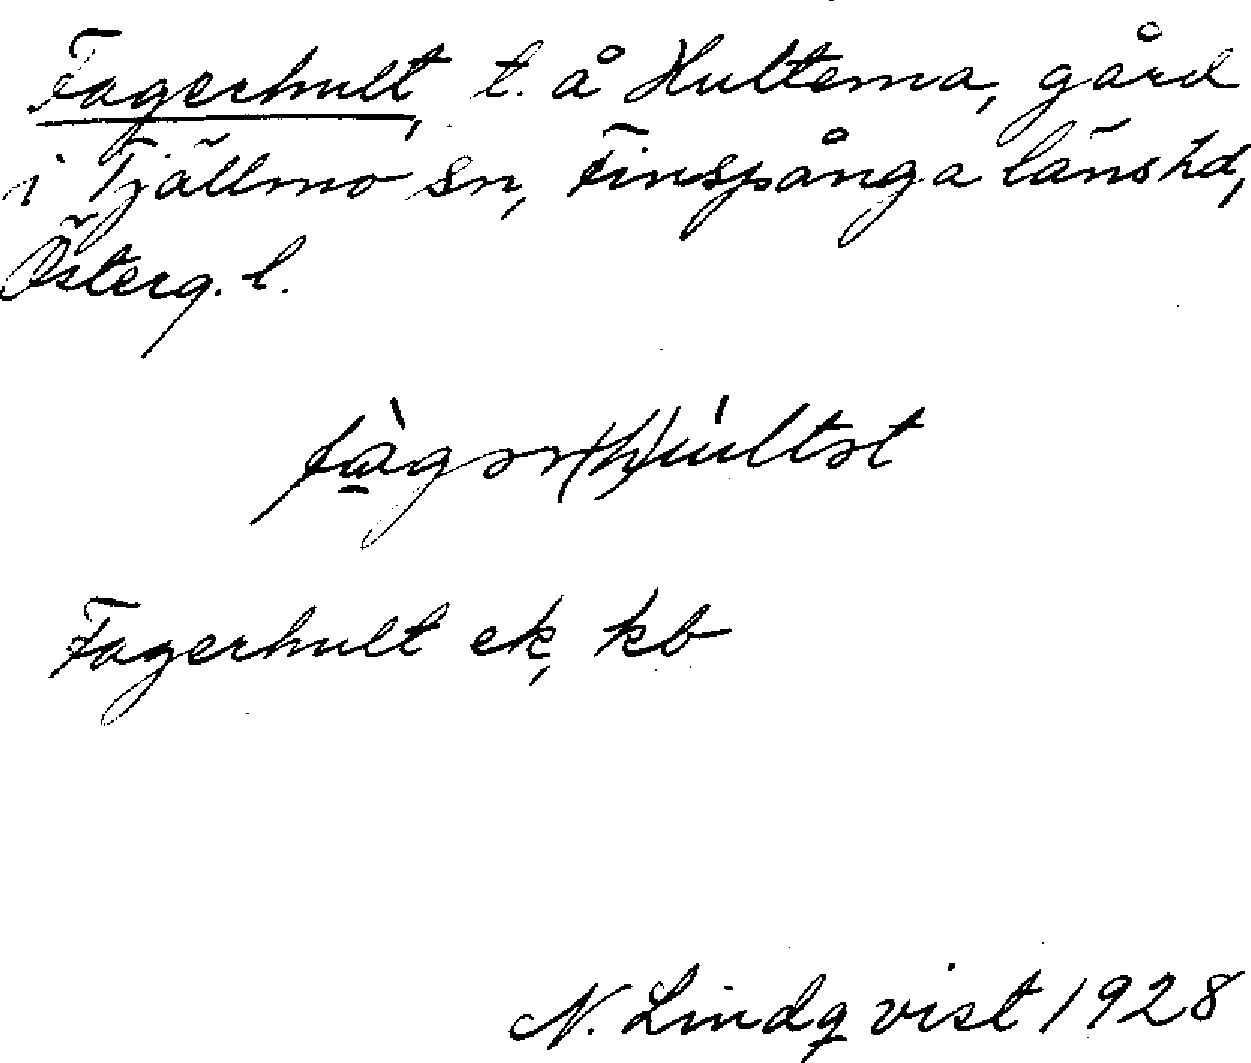 Fagerhult, t. å Hultema, gård
i Tjällmo sn, Finspånga läns hd,
Österg. l.
fàgər(h)últət
Fagerhult ek, kb
N. Lindqvist 1928